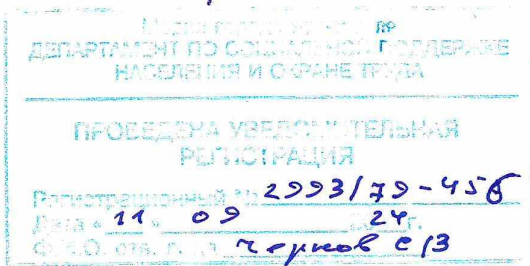 ДЕПАРТАМЕНТ ПО СОЦИАЛЬНОЙ ПОДДЕРЖКЕ
НАСЕЛЕНИЯ И ОХРАНЕ ТРУДА
ПРОВЕДЕНА УВЕДОМИТЕЛЬНАЯ
РЕГИСТРАЦИЯ
Регистрационный № 2993/79-45б
Дата « 11 » 09 2024г.
Ф.И.О. отв. Чернов